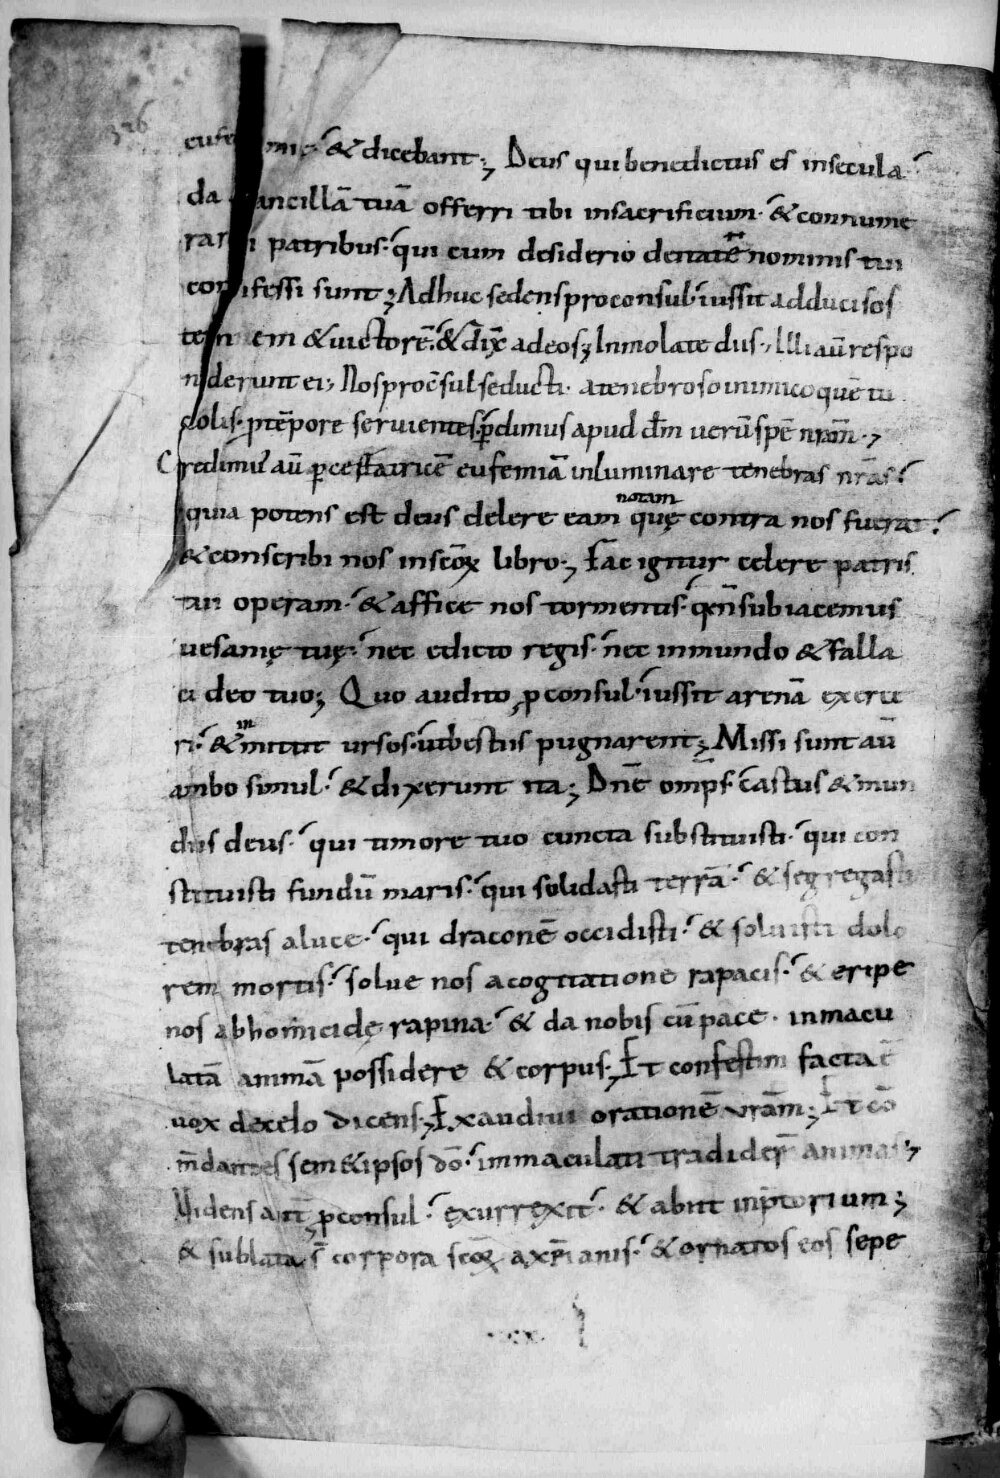 326
eufemie· & dicebant; Deus qui benedictus es insecula·
da ancillā tuā offerri tibi insacrificium· & connume
rari patribus· qui cum desiderio denatē nominis tui
confessi sunt; Adhuc sedens proconsul· iussit adduci sos
tenem & uictorē· & dix̄ adeos; Inmolate diis·, Illi aū respo
nderunt ei; Nos procōsul seducti· atenebroso inimico quē tu
colis· ꝑ tēpore seruientes· ꝑdimus apud dm̄ uerū spē nr̄am·,
Credimus aū ꝑ eufemiā inluminare tenebras nr̄as·
notam
quia potens est deus delere eam quę contra nos fuerat·
& conscribi nos inscōꝝ libro·, Fac igitur celere patris
tui operam· & affice nos tormentis· qm̄ subiacemus
uesanię tuę· nec edicto regis· nec inmundo & falla
ci deo tuo; Quo audito, ꝓconsul· iussit arenā exerce
in
ri· & mittit ursos· ut bestiis pugnarent; Missi sunt aū
ambo simul· & dixerunt ita; Dnē omps̄ castus & mun
dus deus· qui timore tuo cuncta substituisti· qui con
stituisti fundū maris· qui solidasti terrā· & segregasti
tenebras aluce· qui draconē occidisti· & soluisti dolo
rem mortis· solue nos acogitatione rapacis· & eripe
nos abhomicidę rapina· & da nobis cū pace· inmacu
latā animā possidere & corpus·, Et confestim facta ē
uox decelo dicens·, Exaudiui orationē ur̄am; Et cō
m̄dantes sem&ipsos dō· immaculati tradider̄ animas·,
Uidens aūt ꝓconsul· exurrexit· & abiit inp̄torium;
& sublata s̄ corpora scōꝝ axp̄ianis· & ornatos eos sepe